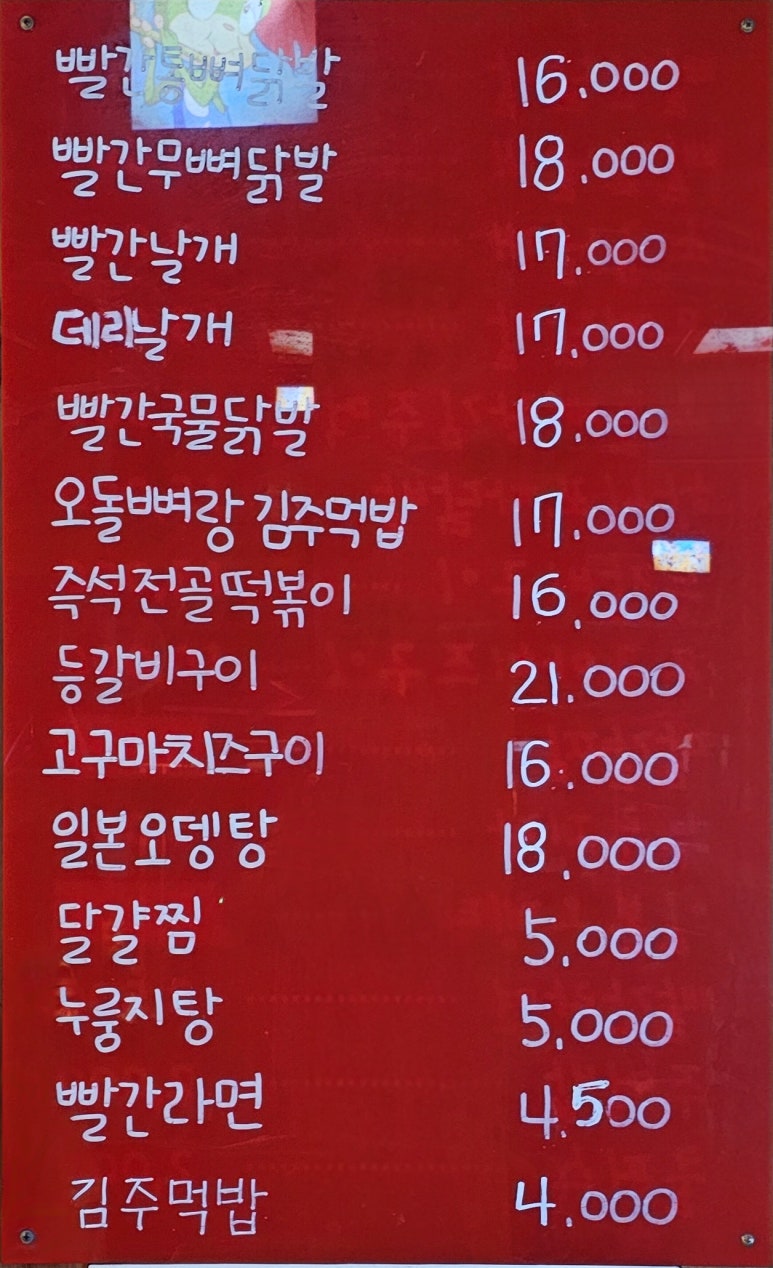 빨간통뼈닭발 16.000
빨간무뼈닭발 18.000
빨간날개 17.000
데리날개 17.000
빨간국물닭발 18.000
오돌뼈랑 김주먹밥 17.000
즉석전골떡볶이 16.000
등갈비구이 21.000
고구마치즈구이 16.000
일본오뎅탕 18.000
달걀찜 5.000
누룽지탕 5.000
빨간라면 4.500
김주먹밥 4.000